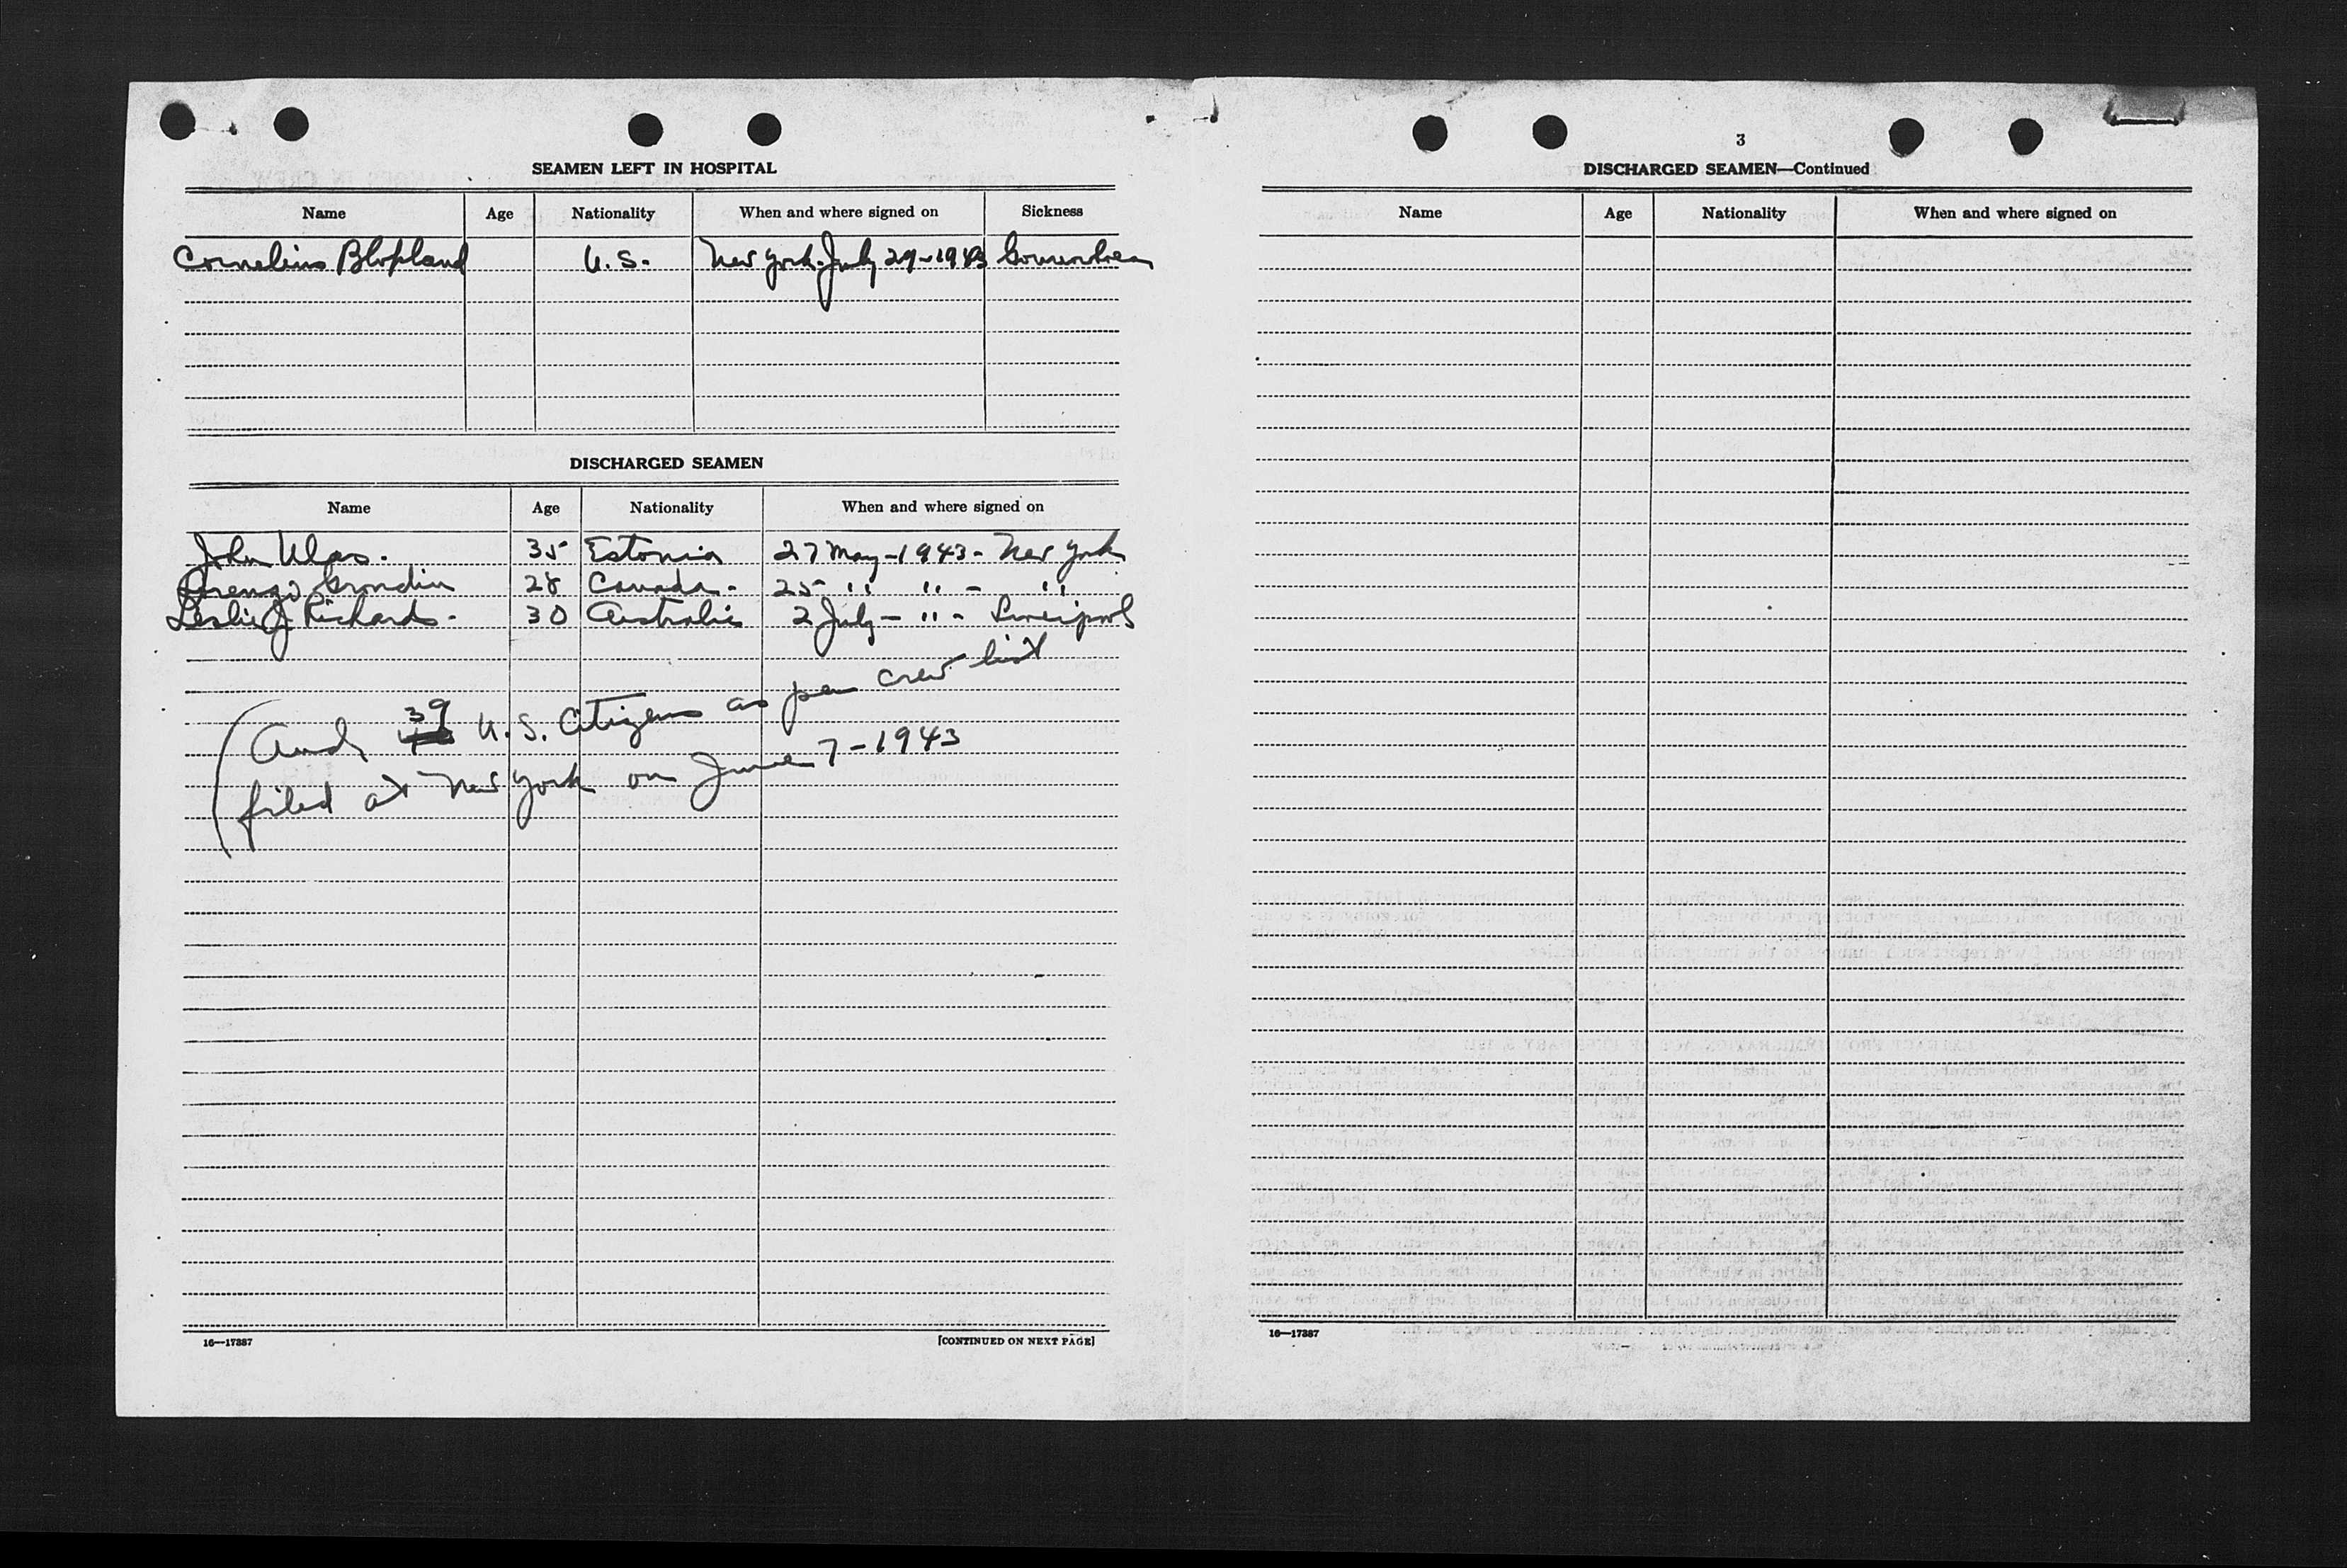 SEAMEN LEFT IN HOSPITAL
Name Age Nationality When and where signed on Sickness
Cornelius U.S. New York. July 29-1943
DISCHARGED SEAMEN
Name Age Nationality When and where signed on
John Ulas. 35 Estonia 27 May-1943- New York
Lorenzo Grondin 28 Canada- 25 " " - "
Leslie J Richards. 30 Australia 2 July- " - Liverpool
(And 39 U.S. Citizens as per crew list
filed at New York on June 7-1943
16—17387 [CONTINUED ON NEXT PAGE]
3
DISCHARGED SEAMEN—Continued
Name Age Nationality When and where signed on
16—17387